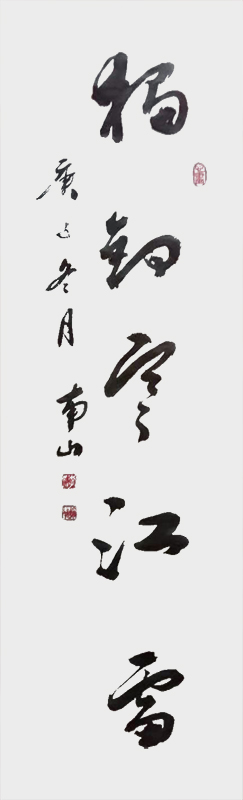 獨釣寒江雪
庚子冬月 南山